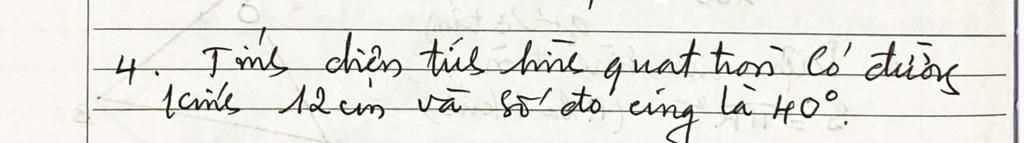 4. Tính diện tích hình quạt tròn có đường
kính 12cm và số đo cung là 40°.